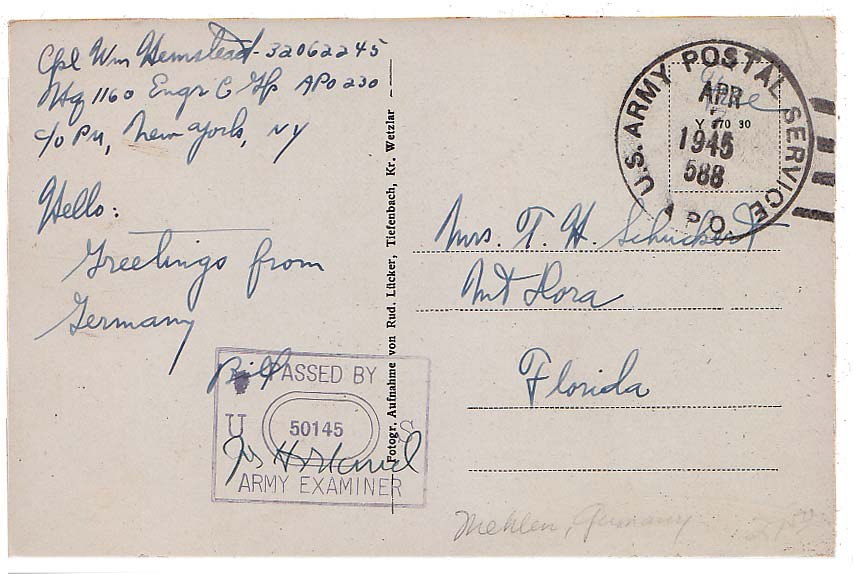 Cpl Wm Hemstead - 32062245
Hq 1160 Engr C Gp APO 230
c/o PM, New York, NY
Hello:
Greetings from
Germany
Bill
PASSED BY
U S
50145
ARMY EXAMINER
Fotogr. Aufnahme von Rud. Lücker, Tiefenbach, Kr. Wetzlar
U.S. ARMY POSTAL SERVICE
APR
Y 370 30
1945
588
A.P.O.
Free
Mrs. T. H. Schuckert
Mt Dora
Florida
Mehlen, Germany